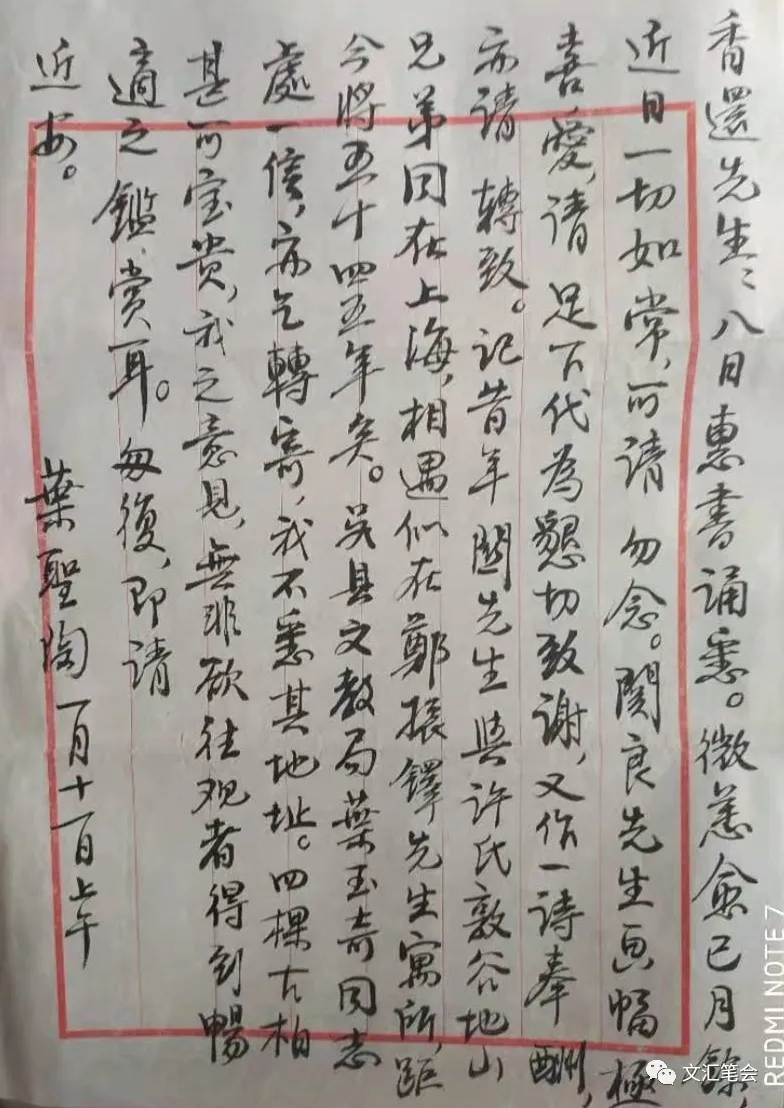 香還先生：八日惠書誦悉。微恙愈已月餘，
近日一切如常，可請 勿念。關良先生畫幅極
喜愛，請 足下代為懇切致謝，又作一詩奉 酬，
亦請 轉致。記昔年關先生與許氏敦谷地山
兄弟同在上海，相遇似在鄭振鐸先生寓所，距
今將五十四五年矣。吳县文教局葉玉奇同志
處一信，亦乞轉寄，我不悉其地址。四棵古柏
甚可宝貴，我之意見，無非欲往观者得到暢
適之鑑賞耳。匆復，即請
近安。
葉聖陶 一月十一日上午
文汇笔会
REDMI NOTE 7